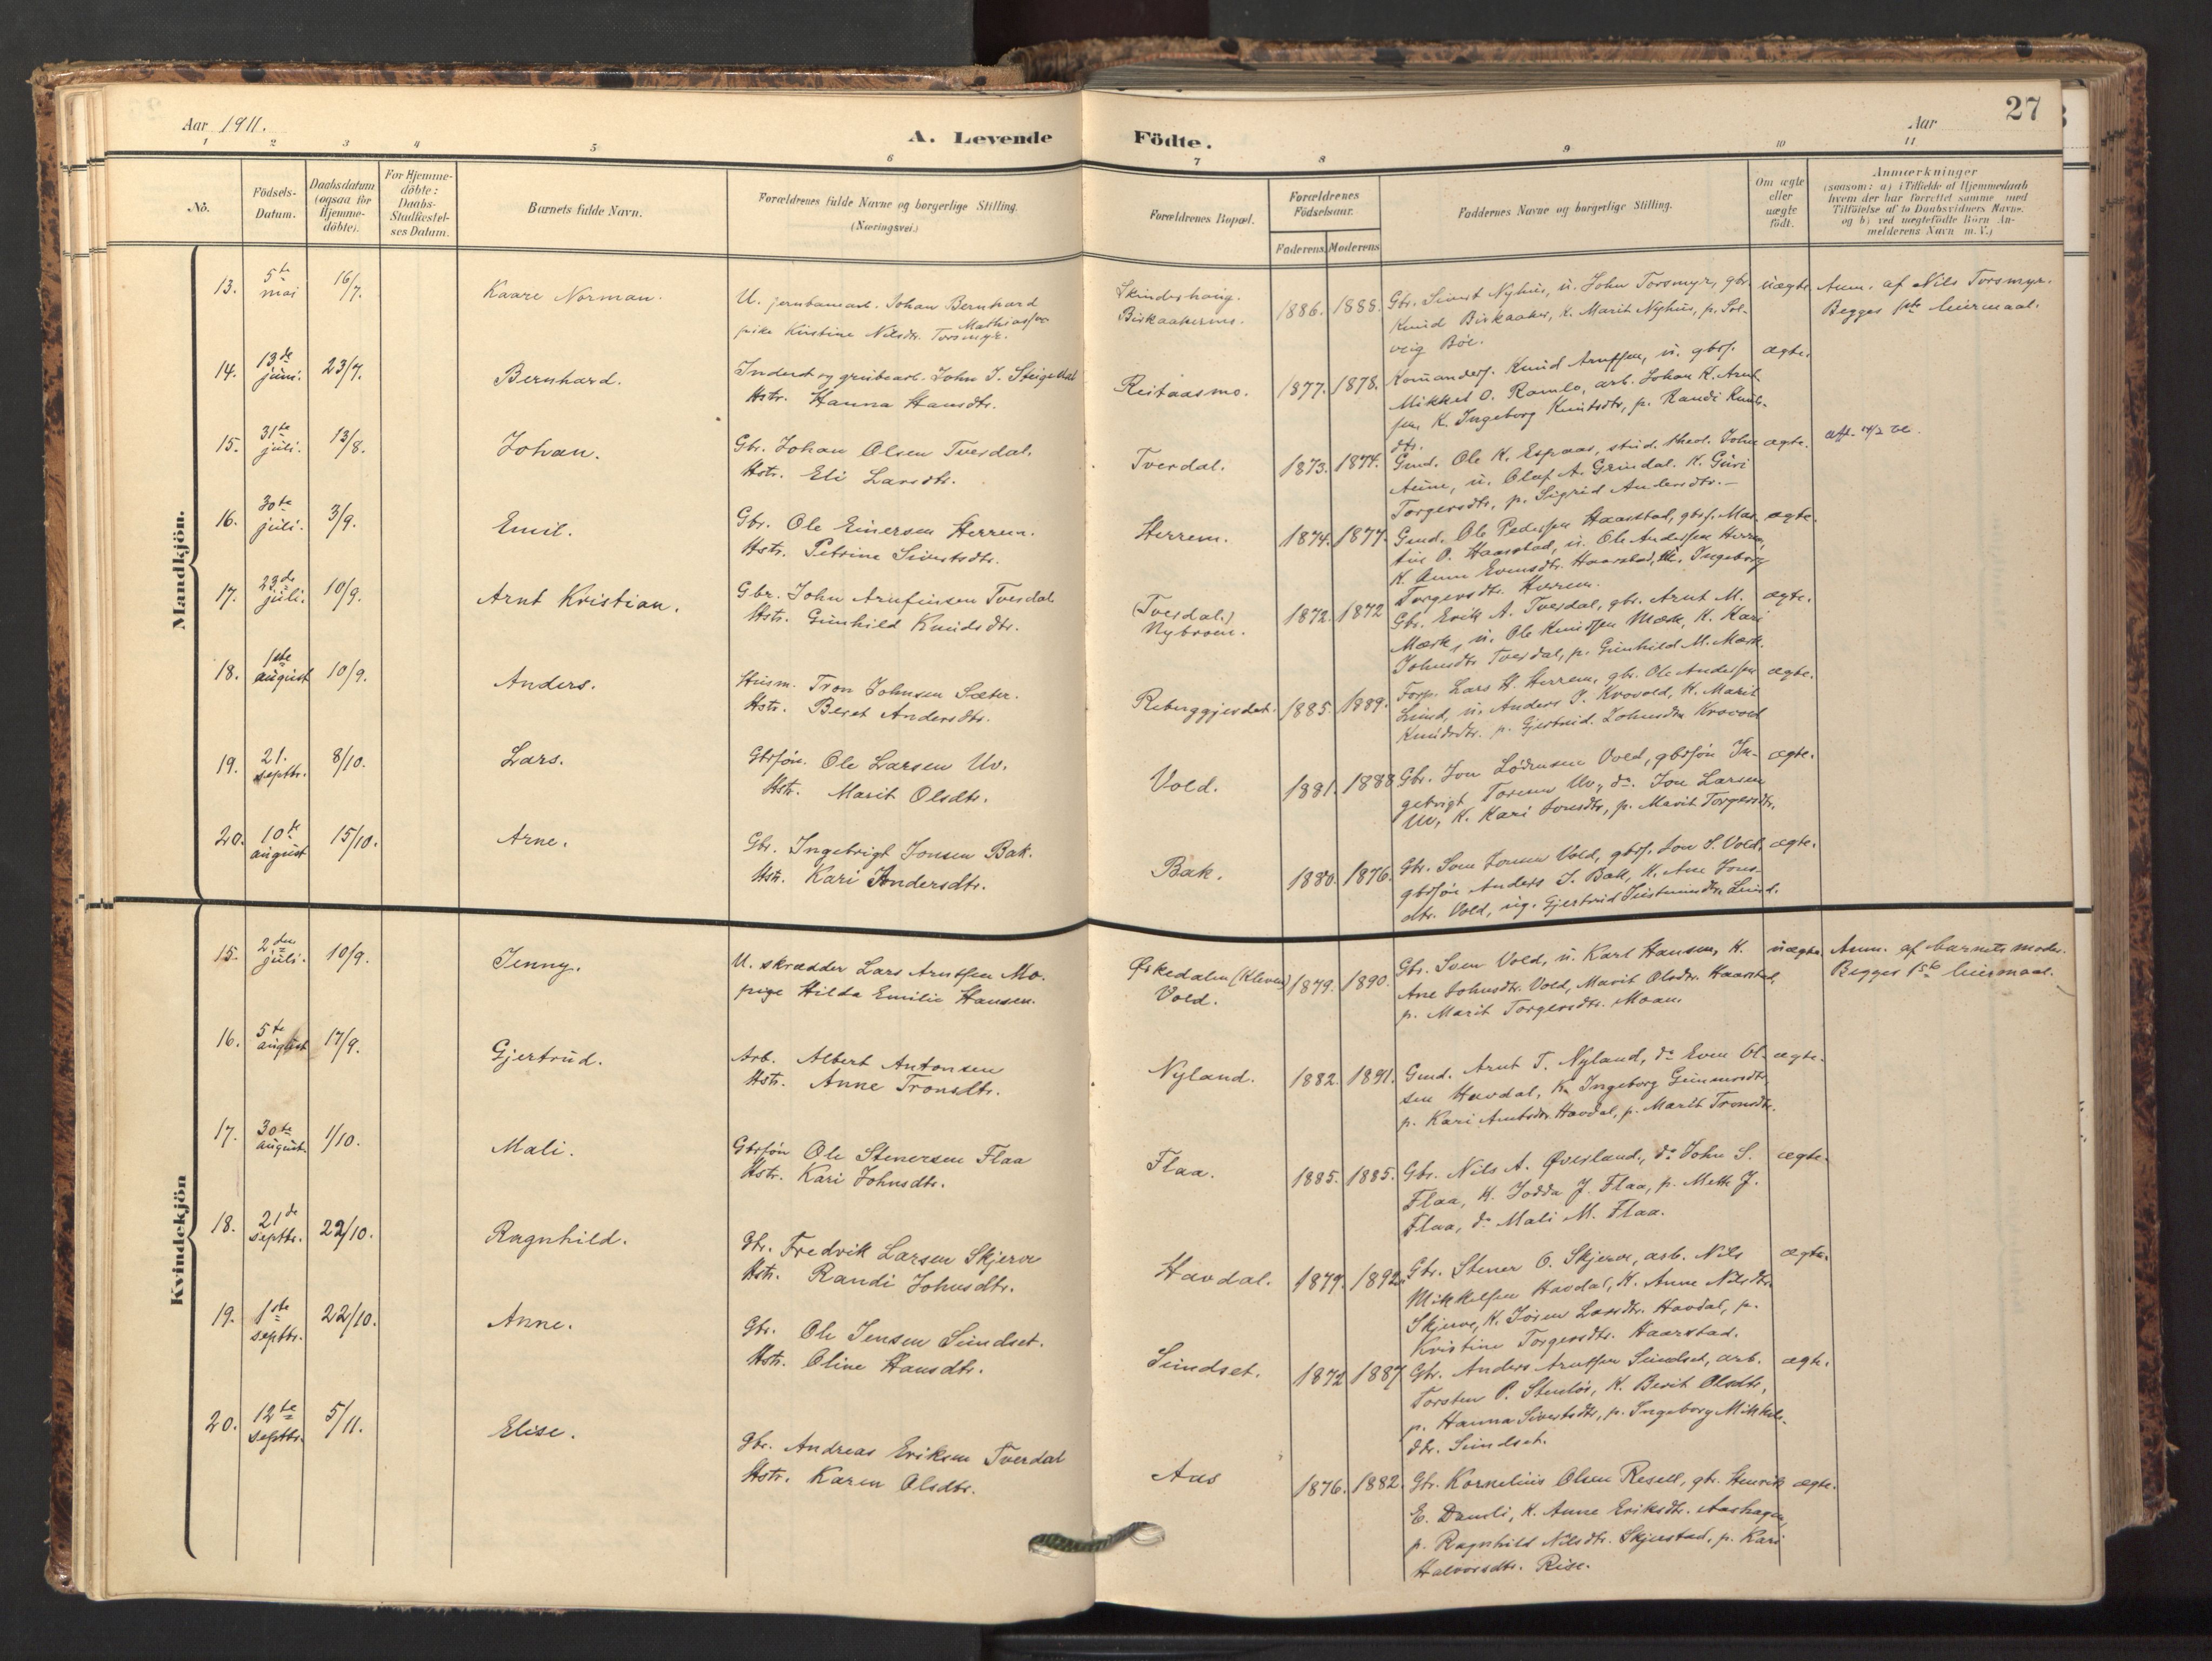 27
Aar 1911.
A. Levende Födte.
Aar
1 2 3 4 5 6 7 8 9 10 11
No.
Födsels-Datum.
Daabsdatum (ogsaa for Hjemme-döbte).
For Hjemme-döbte: Daabs-Stadfæstel-ses Datum.
Barnets fulde Navn.
Forældrenes fulde Navne og borgerlige Stilling.
(Næringsvei.)
Forældrenes Bopæl.
Forældrenes Födselsaar.
Faderens Moderens
Faddernes Navne og borgerlige Stilling.
Om ægte eller uægte födt.
Anmærkninger
(saasom: a) i Tilfælde af Hjemmedaab
hvem der har forrettet samme med
Tilföielse af to Daabsvidners Navne.
og b) ved uægtefödte Börn An-
melderens Navn m. V.)
Mandkjön.
13. 5te mai 16/7. Kaare Norman.
U. jernbanearb. Johan Bernhard Mathiassen
pike Kristine Nilsdtr. Torsmyr.
Skindeshaug.
Birkaakermo. 1886. 1888.
Gbr. Sivert Nyhus, u. John Torsmyr, gbr.
Knud Birkaaker, k. Marit Nyhus, p. Sol-
veig Böe.
uægte. Anm. af Nils Torsmyr.
Begges 1ste leiermaal.
14. 13de juni. 23/7. Bernhard.
Inderst og grubearb. John J.
Hstr. Hanna Hansdtr.
Reitaasmo. 1877. 1878.
Knud Arntssen, u. gbrs.
Mikkel O. Ramlo, arb. Johan K. Arnt-
sen, K. Ingeborg Knutsdtr, p. Randi Knuts-
dtr.
ægte.
15. 31te juli. 13/8. Johan.
Gbr. Johan Olsen Tverdal.
Hstr. Eli Larsdtr.
Tverdal. 1873. 1874.
Gmd. Ole K. Espaas, stud. theol. John
Aune, u. Olaf A. Grindal. K. Guri
Torgersdtr, p. Sigrid Andersdtr.
ægte.
16. 30te juli. 3/9. Emil.
Gbr. Ole Einersen Herrem.
Hstr. Petrine Sivertsdtr.
Herrem. 1874. 1877.
Gmd. Ole Pedersen Haarstad, gbrs. Mar-
tin O. Haarstad, u. Ole Anderssen Herrem,
K. Anne Evensdtr. Haarstad, Ingeborg
Torgersdtr. Herrem.
ægte.
17. 23de juli. 10/9. Arnt Kristian.
Gbr. John Arnfinsen Tverdal
Hstr. Gunhild Knudsdtr.
(Tverdal.)
Nybroen. 1872. 1872
Gbr. Erik A. Tverdal, gbr. Arnt M.
Mærk, u. Ole Knudssen Mærk, K. Kari
Johnsdtr Tverdal, p. Gunhild M. Mærk.
ægte.
18. 1ste august 10/9. Anders.
Husm. Tron Johnsen Sæter.
Hstr. Beret Andersdtr.
Reberggjerdet. 1885. 1889.
Forp. Lars H. Herrem, gbr. Ole Anderssen
Lund, u. Anders J. Krovold, K. Marit
Knudsdtr. p. Gjertrud Johnsdtr Krovold
ægte.
19. 21. septbr. 8/10. Lars.
Gbrsön. Ole Larsen Uv.
Hstr. Marit Olsdtr.
Vold. 1881. 1888
Gbr. Jon Vold, gbrsön In-
gebrigt Uv, do. Jon Larsen
Uv, K. Kari Jonsdtr, p. Marit Torgersdtr.
ægte.
20. 10de august 15/10. Arne.
Gbr. Ingebrigt Jonsen Bak.
Hstr. Kari Andersdtr.
Bak. 1880. 1876.
Gbr. Jonsen Vold, gbrs. Jon S. Vold,
gbrsön Anders J. Bak, K. Ane Jons-
dtr. Vold, ug. Gjertrud Lund.
ægte.
Kvindekjön
15. 2den juli. 10/9. Jenny.
U. skrædder Lars Arntssen Mo.
pige Hilda Emilie Hansen.
Ørkedalen (Kleven)
Vold. 1879. 1890.
Gbr. Sven Vold, u. Karl Hansen, K.
Ane Johnsdtr. Vold, Marit Olsdtr. Haarstad,
p. Marit Torgersdtr. Moan.
uægte. Anm. af barnets moder.
Begges 1ste leiermaal.
16. 5te august 17/9. Gjertrud.
Arb. Albert Antonsen
Hstr. Anne Tronsdtr.
Nyland. 1882. 1891.
Gmd. Arnt T. Nyland, do Even Ol-
sen Havdal, K. Ingeborg Gunnarsdtr,
p. Kari Arntsdtr. Havdal, p. Marit Tronsdtr.
ægte.
17. 30te august. 1/10. Mali.
Gbrsön Ole Stenersen Flaa
Hstr. Kari Johnsdtr.
Flaa. 1885. 1885.
Gbr. Nils A. Øverland, do John S.
Flaa, K. Jodda J. Flaa, p. Mette J.
Flaa, do Mali M. Flaa.
ægte.
18. 21de septbr. 22/10. Ragnhild.
Gbr. Fredrik Larsen Skjerve
Hstr. Randi Johnsdtr.
Havdal. 1879. 1892.
Gbr. Stener O. Skjerve, arb. Nils
Mikkelsen Havdal, K. Anne Nilsdtr.
Skjerve, K. Joren Larsdtr. Havdal, p.
Kristine Torgersdtr. Haarstad.
ægte.
19. 1ste septbr. 22/10. Anne.
Gbr. Ole Jensen Sundset.
Hstr. Oline Hansdtr.
Sundset. 1872 1887
Gbr. Anders Arntssen Sundset, arb.
Torsten P. Stenlös, K. Berit Olsdtr,
p. Hanna Sivertsdtr, p. Ingeborg Mikkels-
dtr. Sundset.
ægte.
20. 12te septbr. 5/11. Elise.
Gbr. Andreas Eriksen Tverdal
Hstr. Karen Olsdtr.
Aas 1876. 1882.
Gbr. Kornelius Olsen Resell, gbr. Henrik
E. Damli, K. Anne Eriksdtr. Aashagen,
p. Ragnhild Nilsdtr. Skjerstad, p. Kari
Halvorsdtr. Rise.
ægte.